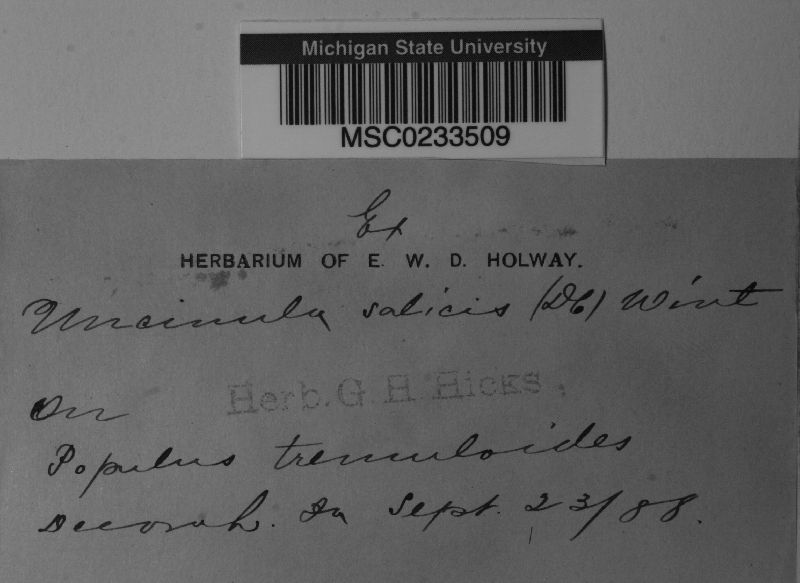 Michigan State University
MSC0233509
Ex
HERBARIUM OF E. W. D. HOLWAY.
Uncinula salicis (DC) Wint
Herb. G. H. Hicks.
On
Populus tremuloides
Decorah. Ia Sept. 23/88.